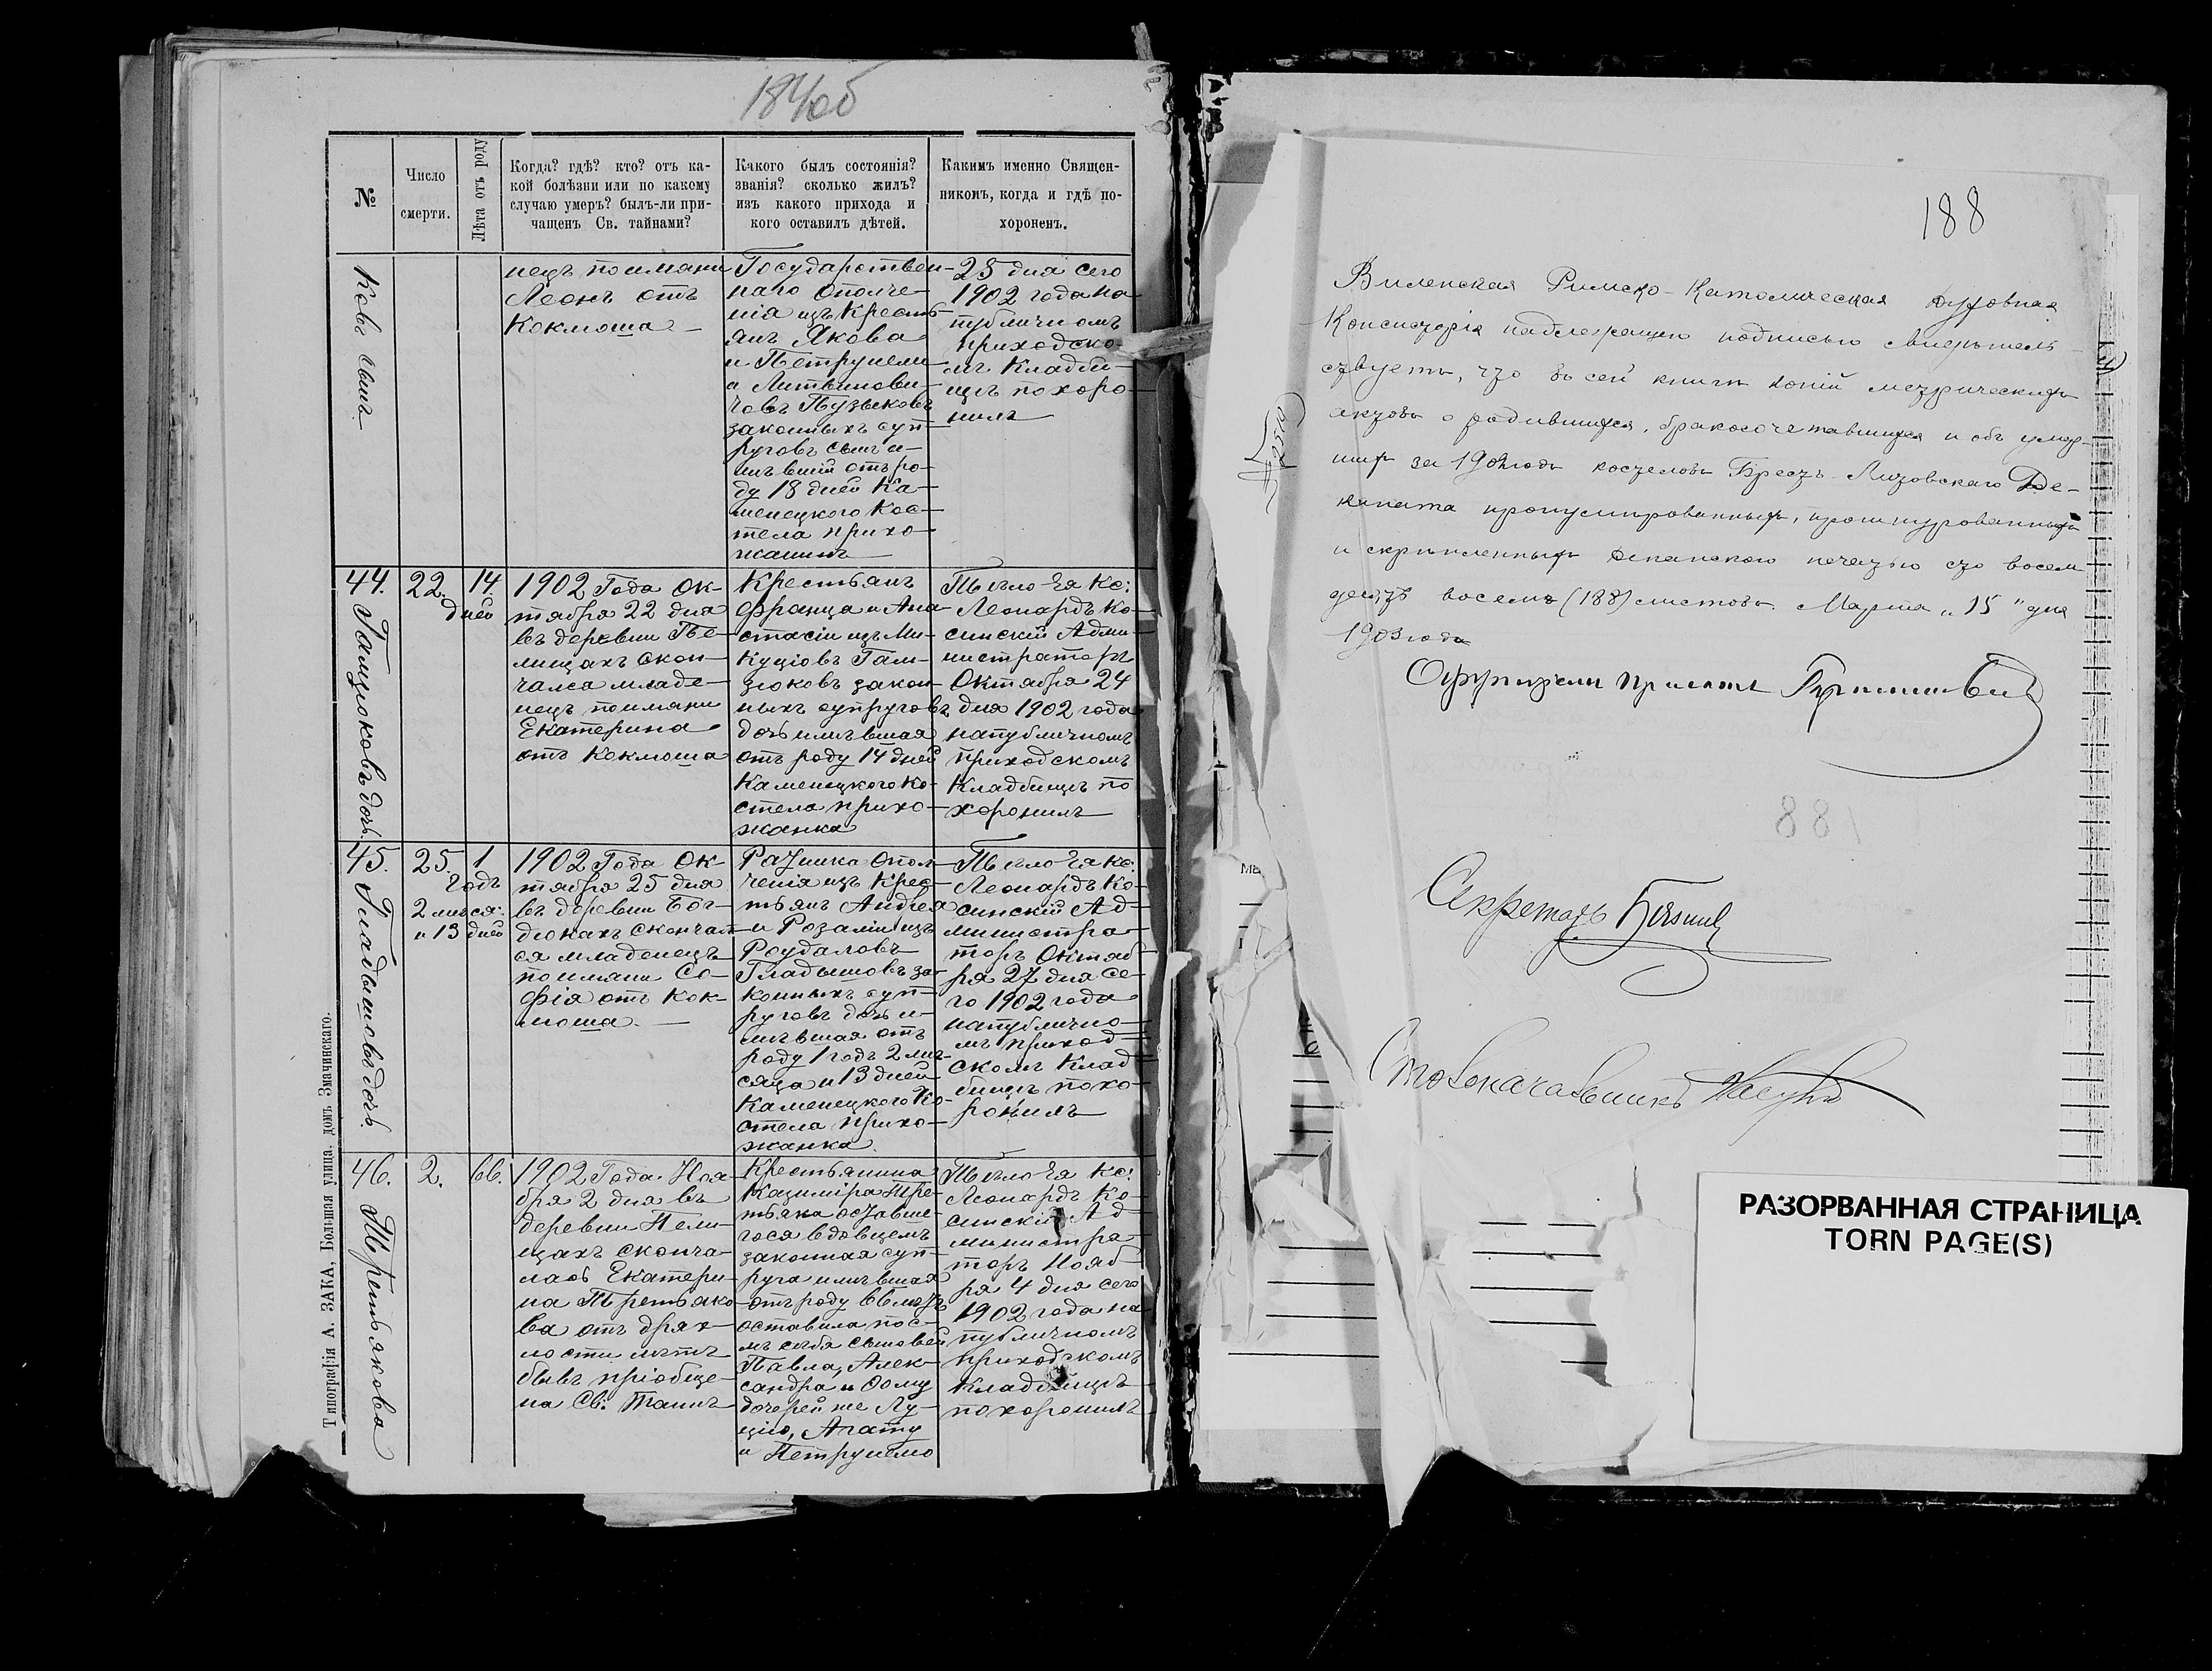 184об
№
Число
смерти.
Лѣта отъ роду
Когда? гдѣ? кто? отъ ка-
кой болѣзни или по какому
случаю умеръ? былъ-ли при-
чащенъ Св. тайнами?
Какого былъ состоянія?
званія? сколько жилъ?
изъ какого прихода и
кого оставилъ дѣтей.
Какимъ именно Священ-
никомъ, когда и гдѣ по-
хороненъ.
ковъ сынъ.
нецъ поимяни
Леонъ отъ
Коклюша
Государствен-
наго Ополче-
нія изъ Кресть-
янъ Якова
и Петрунели
а Литвинови-
човъ Пузыковъ
законныхъ суп-
руговъ сынъ и-
мѣвшій отъ ро-
ду 18 дней Ка-
менецкого Кос-
тела прихо-
жанинъ
23 дня сего
1902 года на
публичномъ
приходско-
мъ Кладби-
щѣ похоро-
нилъ
44.
Гамзюковъ дочь.
22.
14.
дней
1902 Года Ок-
тября 22 дня
въ деревни Пе-
лищахъ скон-
чался младе-
нецъ поимяни
Екатерина
отъ Коклюша
Крестьянъ
Франца и Ана-
стасіи изъ Ми-
куціовъ Гам-
зюковъ закон-
ныхъ супруговъ
дочь имѣвшая
отъ роду 14 дней
Каменецкого Ко-
стела прихо-
жанка
Тѣло Ея Кс:
Леонардъ Ко-
синскій Адми-
нистраторъ
Октября 24
дня 1902 года
напубличномъ
приходскомъ
Кладбищѣ по
хоронилъ
45.
Гладышовъ дочь.
25.
1
годъ
2 мѣся:
и 13 дней
1902 Года Ок-
тября 25 дня
въ деревни Бог-
дюкахъ скончал-
ся младенецъ
поимяни Со-
фія отъ Кок-
люша.
Ратника Опол-
ченія изъ Крес-
тьянъ Андрея
и Розаліи изъ
Роудаловъ
Гладышовъ за-
конныхъ суп-
руговъ дочь и-
мѣвшая отъ
роду 1 годъ 2 мѣ-
сяца и 13 дней
Каменецкого Ко-
стела прихо-
жанка.
Тѣло Ея Кс:
Леонардъ Ко-
синскій Ад-
министра-
торъ Октяб-
ря 27 дня се-
го 1902 года
напублично-
мъ приход-
скомъ Клад
бищѣ похо-
ронилъ
46.
Третьякова
2.
66.
1902 Года Ноя-
бря 2 дня въ
деревни Пели-
щахъ сконча-
лась Екатери-
на Третьяко-
ва отъ дрях-
лости лѣтъ
бывъ пріобще-
на Св: Таинъ
Крестьянина
Казиміра Тре-
тьяка оставше-
гося вдовцемъ
законная суп-
руга имѣвшая
отъ роду 66 лѣтъ
оставила пос-
лѣ себя сыновей
Павла, Алек-
сандра и Фому
дочерей же Лу-
цію, Агату
и Петрунелю
Тѣло Ея Кс:
Леонардъ Ко-
синскій Ад-
министра-
торъ Нояб-
ря 4 дня сего
1902 года на
публичномъ
приходскомъ
Кладбищѣ
похоронилъ
Типографія А. ЗАКА, Большая улица, домъ Значинскаго.
188
Виленская Римско-Католическая Духовная
Консисторія надлежащею подписью свидѣтель-
ствуетъ, что въ сей книгѣ копій метрическихъ
актовъ о родившихся, бракосочетавшихся и объ умер-
шихъ за 1902 годъ костеловъ Брестъ-Литовскаго Де-
каната пронумерованныхъ, прошнурованныхъ
и скрѣпленныхъ деканскою печатью сто восемь
десятъ восемь (188) листовъ. Марта "15" дня
1903 года
Оффиціалъ Прелатъ
Секретарь
Столоначальникъ
188
РАЗОРВАННАЯ СТРАНИЦА
TORN PAGE(S)